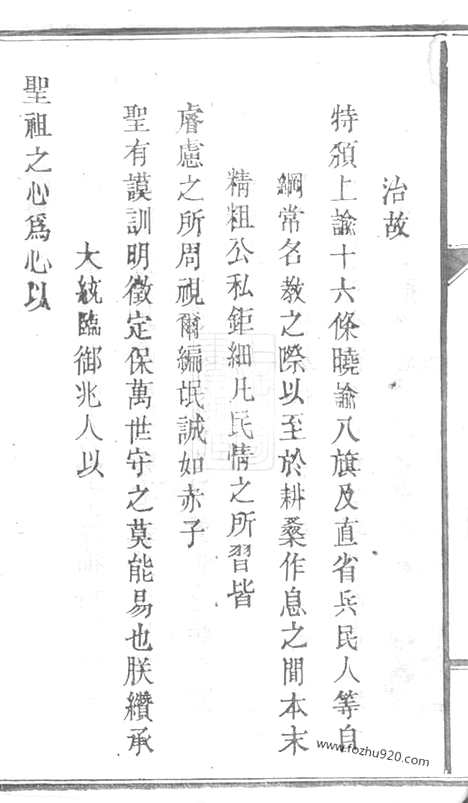 治故
特頒上諭十六條曉諭八旗及直省兵民人等自
綱常名教之際以至於耕桑作息之間本末
精粗公私鉅細凡民情之所習皆
睿慮之所周視爾編氓誠如赤子
聖有謨訓明徵定保萬世守之莫能易也朕纘承
大統臨御兆人以
聖祖之心爲心以
www.fozhu920.com